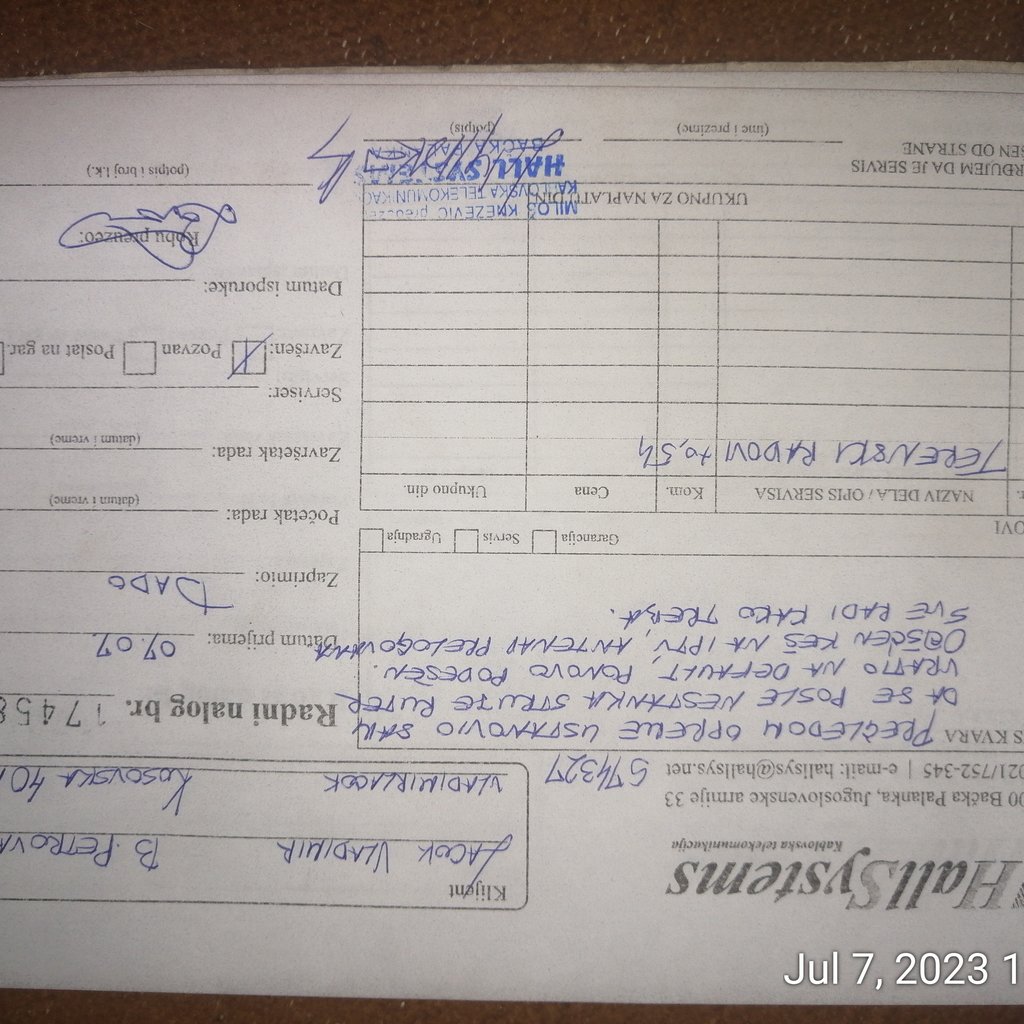 HallSystems
Kablovska telekomunikacija
00 Bačka Palanka, Jugoslovenske armije 33
021/752-345 | e-mail: halisys@hallsys.net
574327
Klijent
LACOK VLADIMIR B. PETROVA
VLADIMIRLACOK KOSOVSKA 40
S KVARA PREGLEDOM OPREME USTANOVIO SAM
DA SE POSLE NESTANKA STRUJE RUTER
VRATIO NA DEFAULT, PONOVO PODEŠEN.
OBŠĆEN KEŠ NA IPTV, ANTENAI PRELOGOVANA
SVE RADI KAKO TREBA.
Garancija Servis Ugradnja
OVI
NAZIV DELA / OPIS SERVISA Kom. Cena Ukupno din.
TERENSKI RADOVI to,5h
UKUPNO ZA NAPLATU DIN
RDUJEM DA JE SERVIS
ŠEN OD STRANE
(ime i prezime) (potpis)
MILOŠ KNEŽEVIĆ preduze
KABLOVSKA TELEKOMUNIKAC
HALL SYS
BAČKA PALANKA
Radni nalog br. 17458
Datum prijema: 07.07
Zaprimio: DADO
Početak rada:
(datum i vreme)
Završetak rada:
(datum i vreme)
Serviser:
Završen: Pozvan Poslat na gar.
Datum isporuke:
Robu preuzeo:
(potpis i broj l.k.)
Jul 7, 2023 1